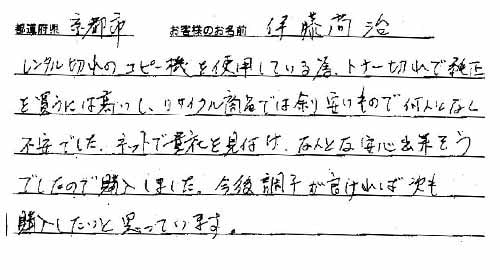 都道府県 京都市 お客様のお名前 伊藤尚治
レンタル切れのコピー機を使用している為、トナー切れで純正
を買うには高いし、リサイクル商品では余り安いもので何んとなく
不安でした。ネットで貴社を見付け、なんとな安心出来そう
でしたので購入しました。今後調子が良ければ次も
購入したいと思っています。